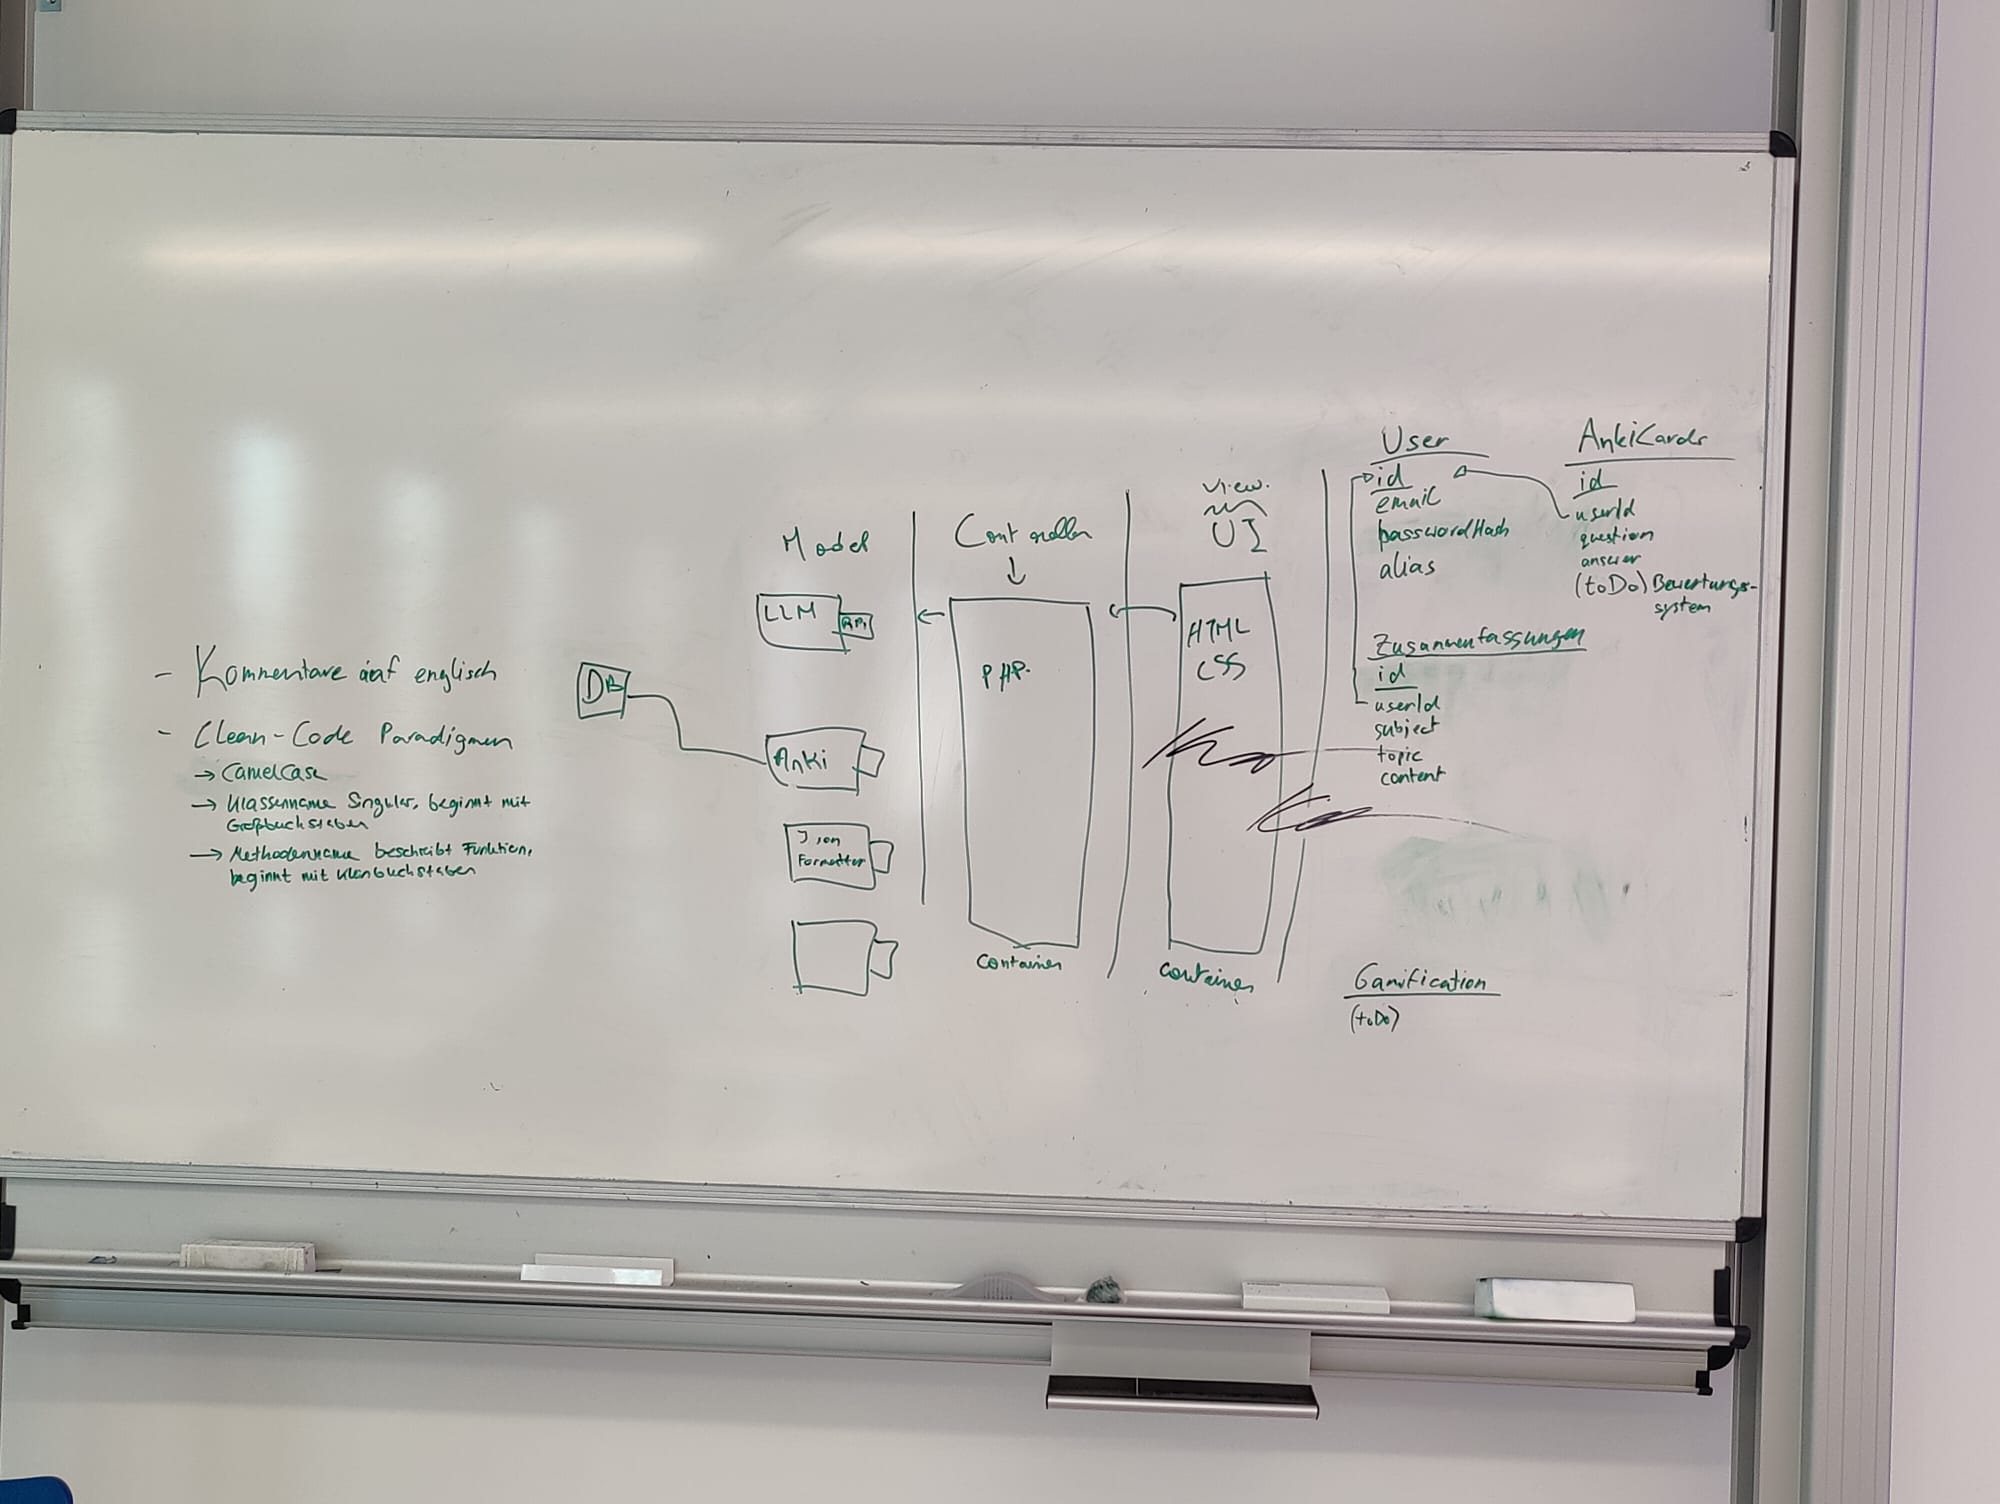 - Kommentare auf englisch
- Clean-Code Paradigmen
→ CamelCase
→ Klassenname Singular, beginnt mit
Großbuchstaben
→ Methodenname beschreibt Funktion,
beginnt mit Kleinbuchstaben
DB
Model
LLM
API
Anki
Json
Formatter
Controller
PHP
Container
View
UI
HTML
CSS
Container
User
id
email
passwordHash
alias
AnkiCards
id
userId
question
answer
(toDo) Bewertungs-
system
Zusammenfassungen
id
userId
subject
topic
content
Gamification
(toDo)